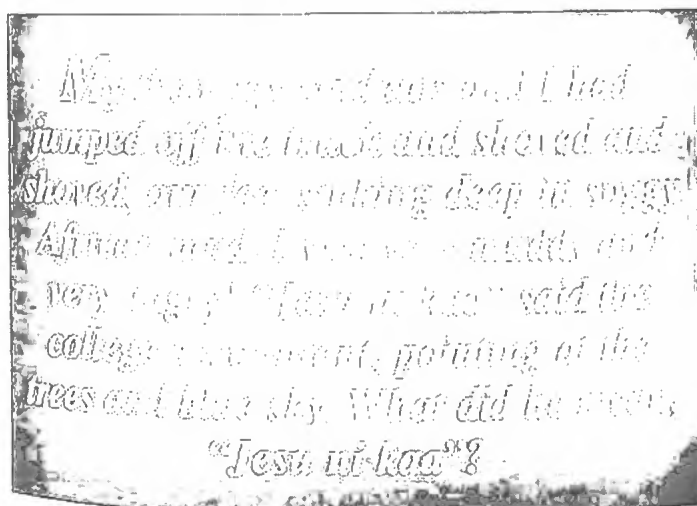 My and I had
jumped off the truck and shoved and
shoved, our feet sinking deep in soggy
African mud. I was muddy and
very angry! "Jesu ni kaa" said the
college , pointing at the
trees and blue sky. What did he mean,
"Jesu ni kaa"?